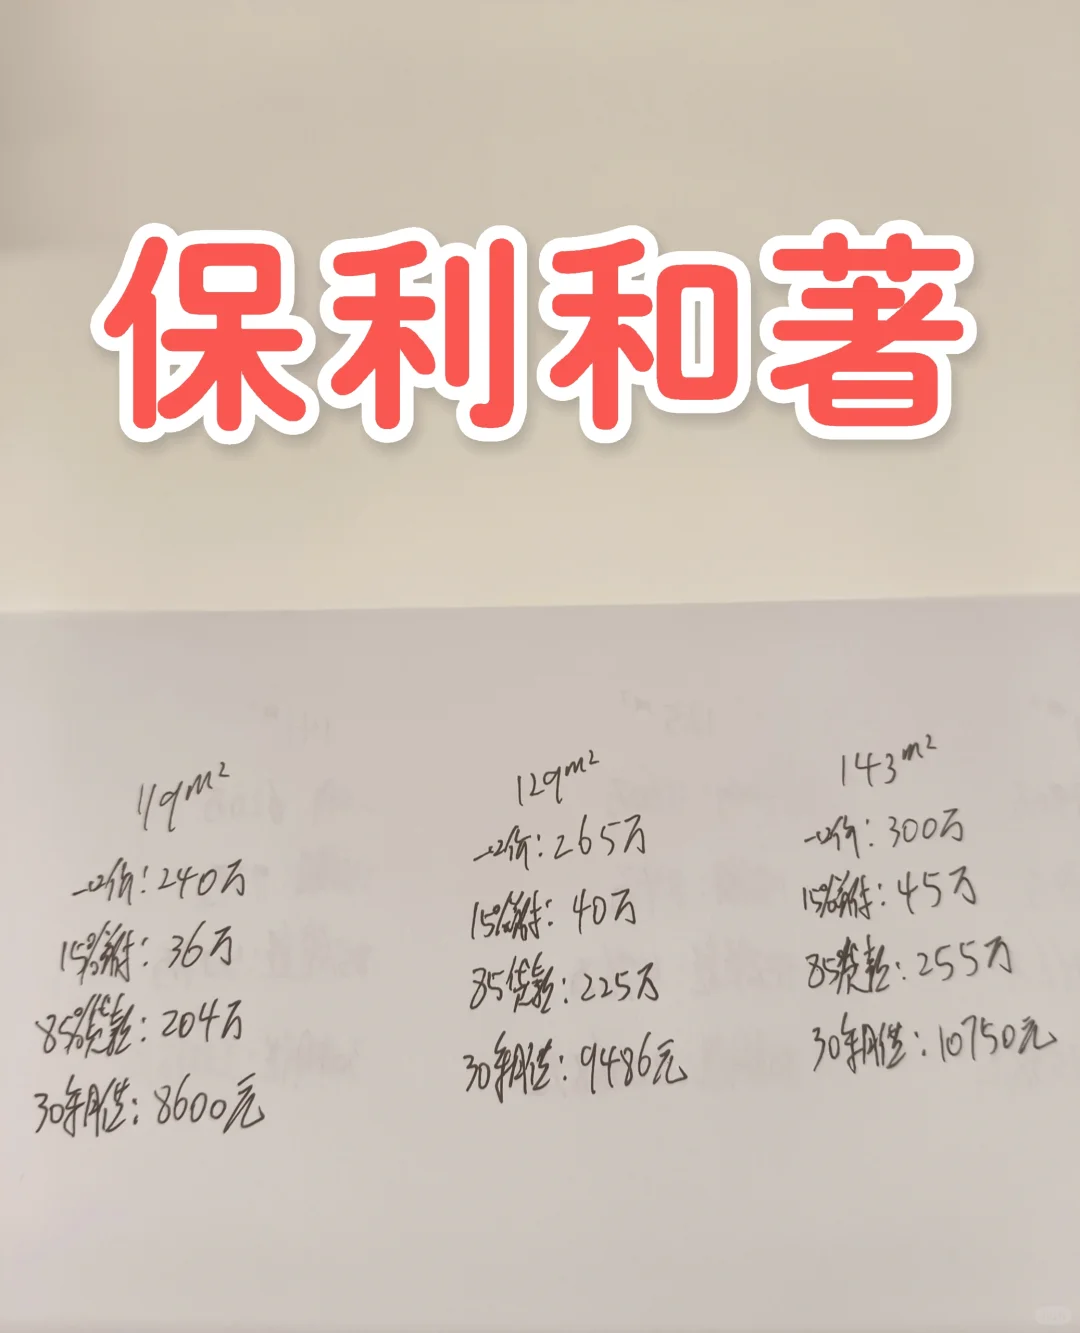 保利和著
119m²
一口价:240万
15%首付:36万
85%贷款:204万
30年月供:8600元
129m²
一口价:265万
15%首付:40万
85贷款:225万
30年月供:9486元
143m²
一口价:300万
15%首付:45万
85%贷款:255万
30年月供:10750元